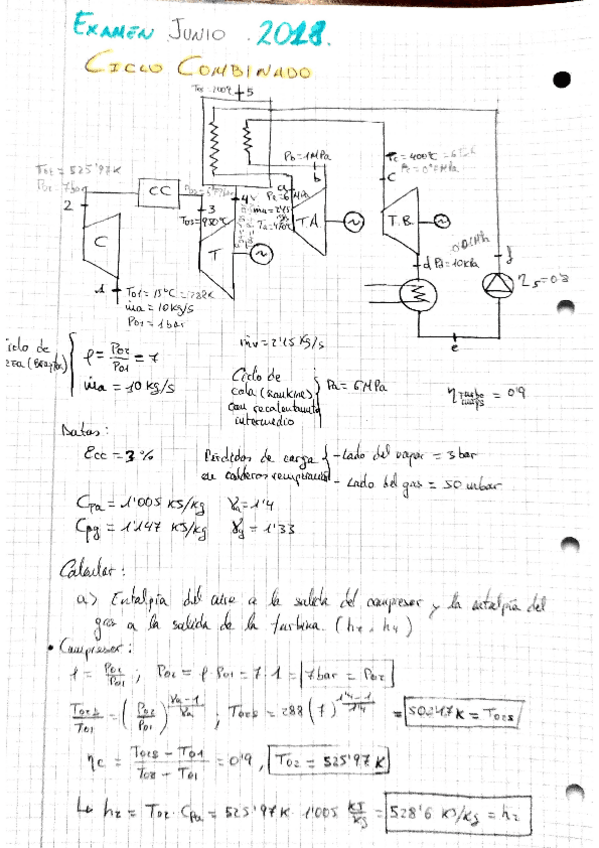 EXAMEN JUNIO 2018.
CICLO COMBINADO
5
Pb = 1MPa
To2 = 525'97K
Po2 = 7bar
CC
2
3
4
C
T
T.A.
T.B.
b
c
Pd = 10kPa
d
e
1
To1 = 15ºC = 288K
ṁa = 10kg/s
Po1 = 1bar
ηs = 0'8
ṁv = 2'15 kg/s
ρ = Po2/Po1 = 7
ṁa = 10 kg/s
Ciclo de
cola (Rankine)
con recalentamiento
intermedio
Pa = 6MPa
= 0'9
Datos:
εcc = 3%
Pérdidas de carga
en caldera
- Lado del vapor = 3bar
- Lado del gas = 50 mbar
Cpa = 1'005 KJ/kg γa = 1'4
Cpg = 1'147 KJ/kg γg = 1'33
Calcular:
a) Entalpía del aire a la salida del compresor y la entalpía del
gas a la salida de la turbina. (h2, h4)
• Compresor:
ρ = Po2/Po1 ; Po2 = ρ·Po1 = 7·1 = 7bar = Po2
To2s/To1 = (Po2/Po1)^(γa-1/γa) ; To2s = 288(7)^(1'4-1/1'4) = 502'17K = To2s
ηc = To2s - To1 / To2 - To1 = 0'9, To2 = 525'97K
↳ h2 = To2·Cpa = 525'97K · 1'005 KJ/kg = 528'6 KJ/kg = h2